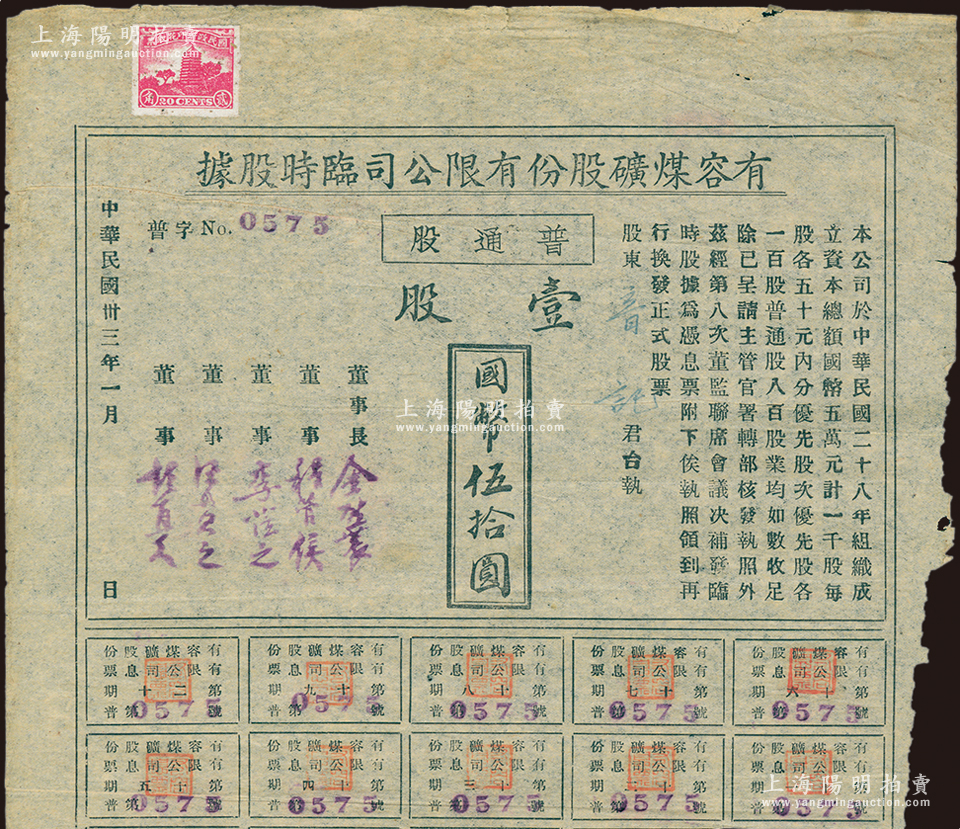 上海陽明拍賣
www.yangmingauction.com
上海陽明拍賣
www.yangmingauction.com
上海陽明拍賣
www.yangmingauction.com
國民政府
角 20 CENTS 貳
有容煤礦股份有限公司臨時股據
普字 No. 0575
普通股
本公司於中華民國二十八年組織成
立資本總額國幣五萬元計一千股每
股各五十元內分優先股次優先股各
一百股普通股八百股業均如數收足
除已呈請主管官署轉部核發執照外
茲經第八次董監聯席會議決補發臨
時股據爲憑息票附下俟執照領到再
行換發正式股票
股東 記 君台執
壹股
國幣伍拾圓
董事長
董事
董事
董事
董事
中華民國卅三年一月 日
有容煤礦股份
有限公司息票
第十六期
普第0575號
有容煤礦股份
有限公司息票
第十七期
普第0575號
有容煤礦股份
有限公司息票
第十八期
普第0575號
有容煤礦股份
有限公司息票
第十九期
普第0575號
有容煤礦股份
有限公司息票
第二十期
普第0575號
有容煤礦股份
有限公司息票
第十一期
普第0575號
有容煤礦股份
有限公司息票
第十二期
普第0575號
有容煤礦股份
有限公司息票
第十三期
普第0575號
有容煤礦股份
有限公司息票
第十四期
普第0575號
有容煤礦股份
有限公司息票
第十五期
普第0575號